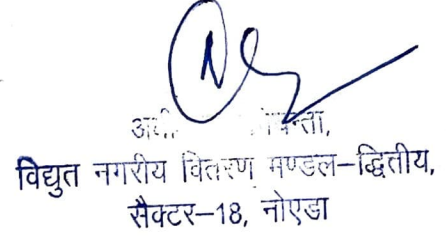 विद्युत नगरीय वितरण मण्डल-द्वितीय,
सैक्टर-18, नोएडा